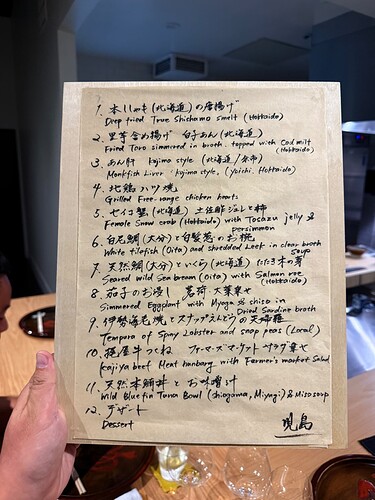 1. 本ししゃも(北海道)の唐揚げ
Deep fried True Shishamo smelt (Hokkaido)
2. 里芋含め揚げ 白子あん(北海道)
Fried Taro simmered in broth. topped with Cod milt
(Hokkaido)
3. あん肝 kojima style. (北海道/余市)
Monkfish Liver 'kojima style, (Yoichi, Hokkaido)
4. 地鶏ハツ焼
Grilled Free-range chicken hearts
5. セイコ蟹(北海道) 土佐酢ジュレと柿
Female Snow crab (Hokkaido) with Tosazu jelly &
persimmon
6. 白尼鯛(大分)と白髪葱のお椀
White tilefish (Oita) and shredded Leek in clear broth
soup
7. 天然鯛(大分)といくら(北海道)
Seared wild Sea bream (Oita) with Salmon roe
(Hokkaido)
8. 茄子のお浸し 茗荷 大葉
Simmered Eggplant with Myoga & shiso in
Dried Sardine broth
9. 伊勢海老 とスナップえんどうの天婦羅
Tempura of Spiny Lobster and snap peas (Local)
10. 梶屋牛つくね ファーマーズマーケット サラダ
kajiya beef Meat hamburg with Farmer's market Salad
11. 天然本鮪丼 と お味噌汁
Wild Bluefin Tuna Bowl (shiogama, Miyagi) & Miso soup
12. デザート
Dessert
児島